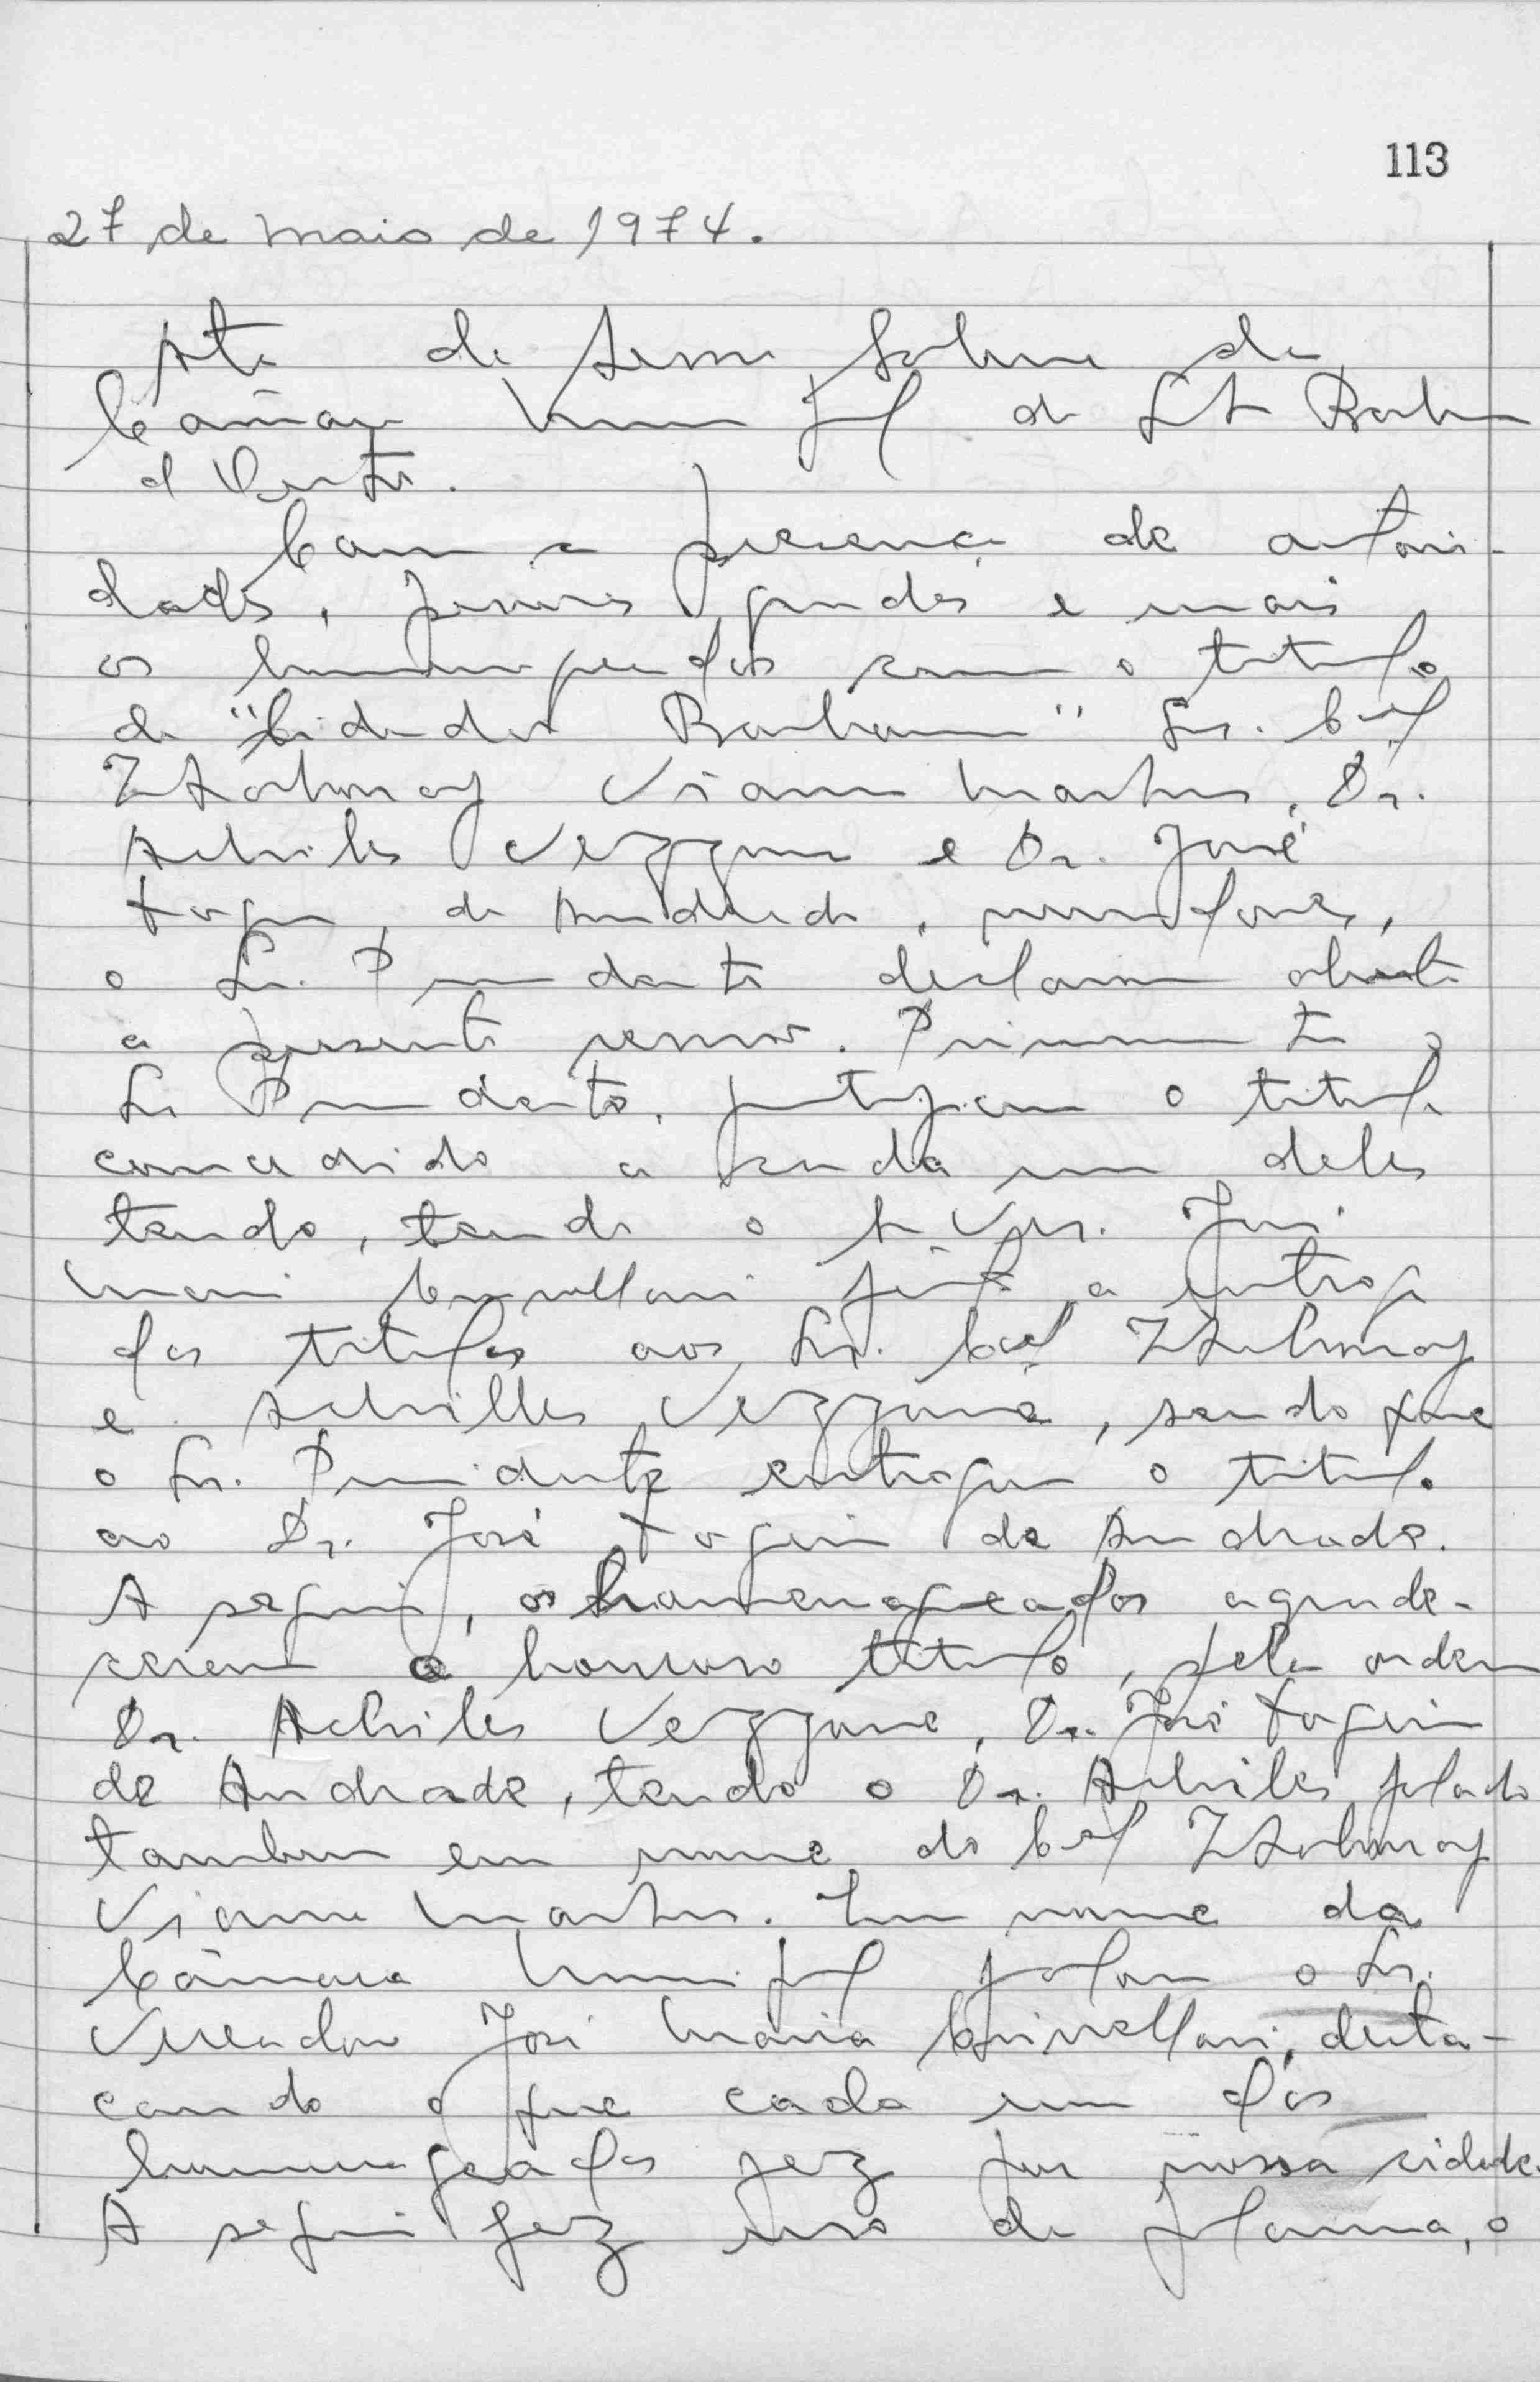 113
27 de maio de 1974.
Ata de Sessão Solene da
Câmara Municipal de Sta Barbara
d'Oeste.
Com a presença de autori-
dades, pessoas gradas e mais
os homenageados com o titulo
de "Cidadão Barbarense" Srs. Cel
Viana Martins, Dr.
Achiles Vezzani e Dr. José
de Andrade,
o Sr. Presidente declarou aberta
a presente sessão. Primeiramente o
Sr Presidente, justificou o titulo
concedido a cada um deles
tendo, tendo o Sr Ver. José
Maria feito a entrega
dos titulos aos Srs. Cel
e Achilles Vezzani, sendo que
o Sr. Presidente entregou o titulo
ao Dr. José de Andrade.
A seguir, os homenageados agrade-
ceram o honroso titulo, pela ordem
Dr. Achiles Vezzani, Dr. José
de Andrade, tendo o Dr. Achiles falado
tambem em nome do Cel
Viana Martins. Em nome da
Câmara Municipal falou o Sr.
Vereador José Maria desta-
cando o que cada um dos
homenageados fez por nossa cidade.
A seguir fez uso da palavra, o